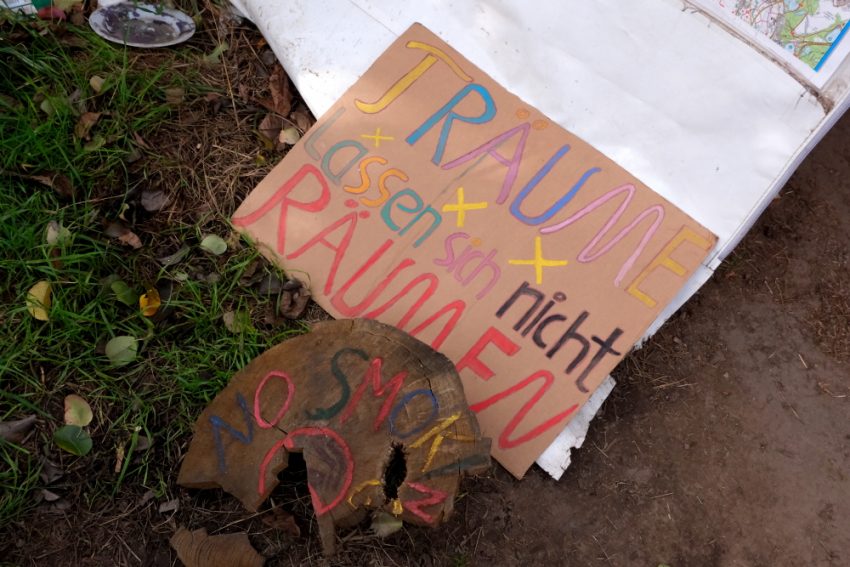 TRÄUME
Lassen sich nicht
RÄUMEN
NO SMOK